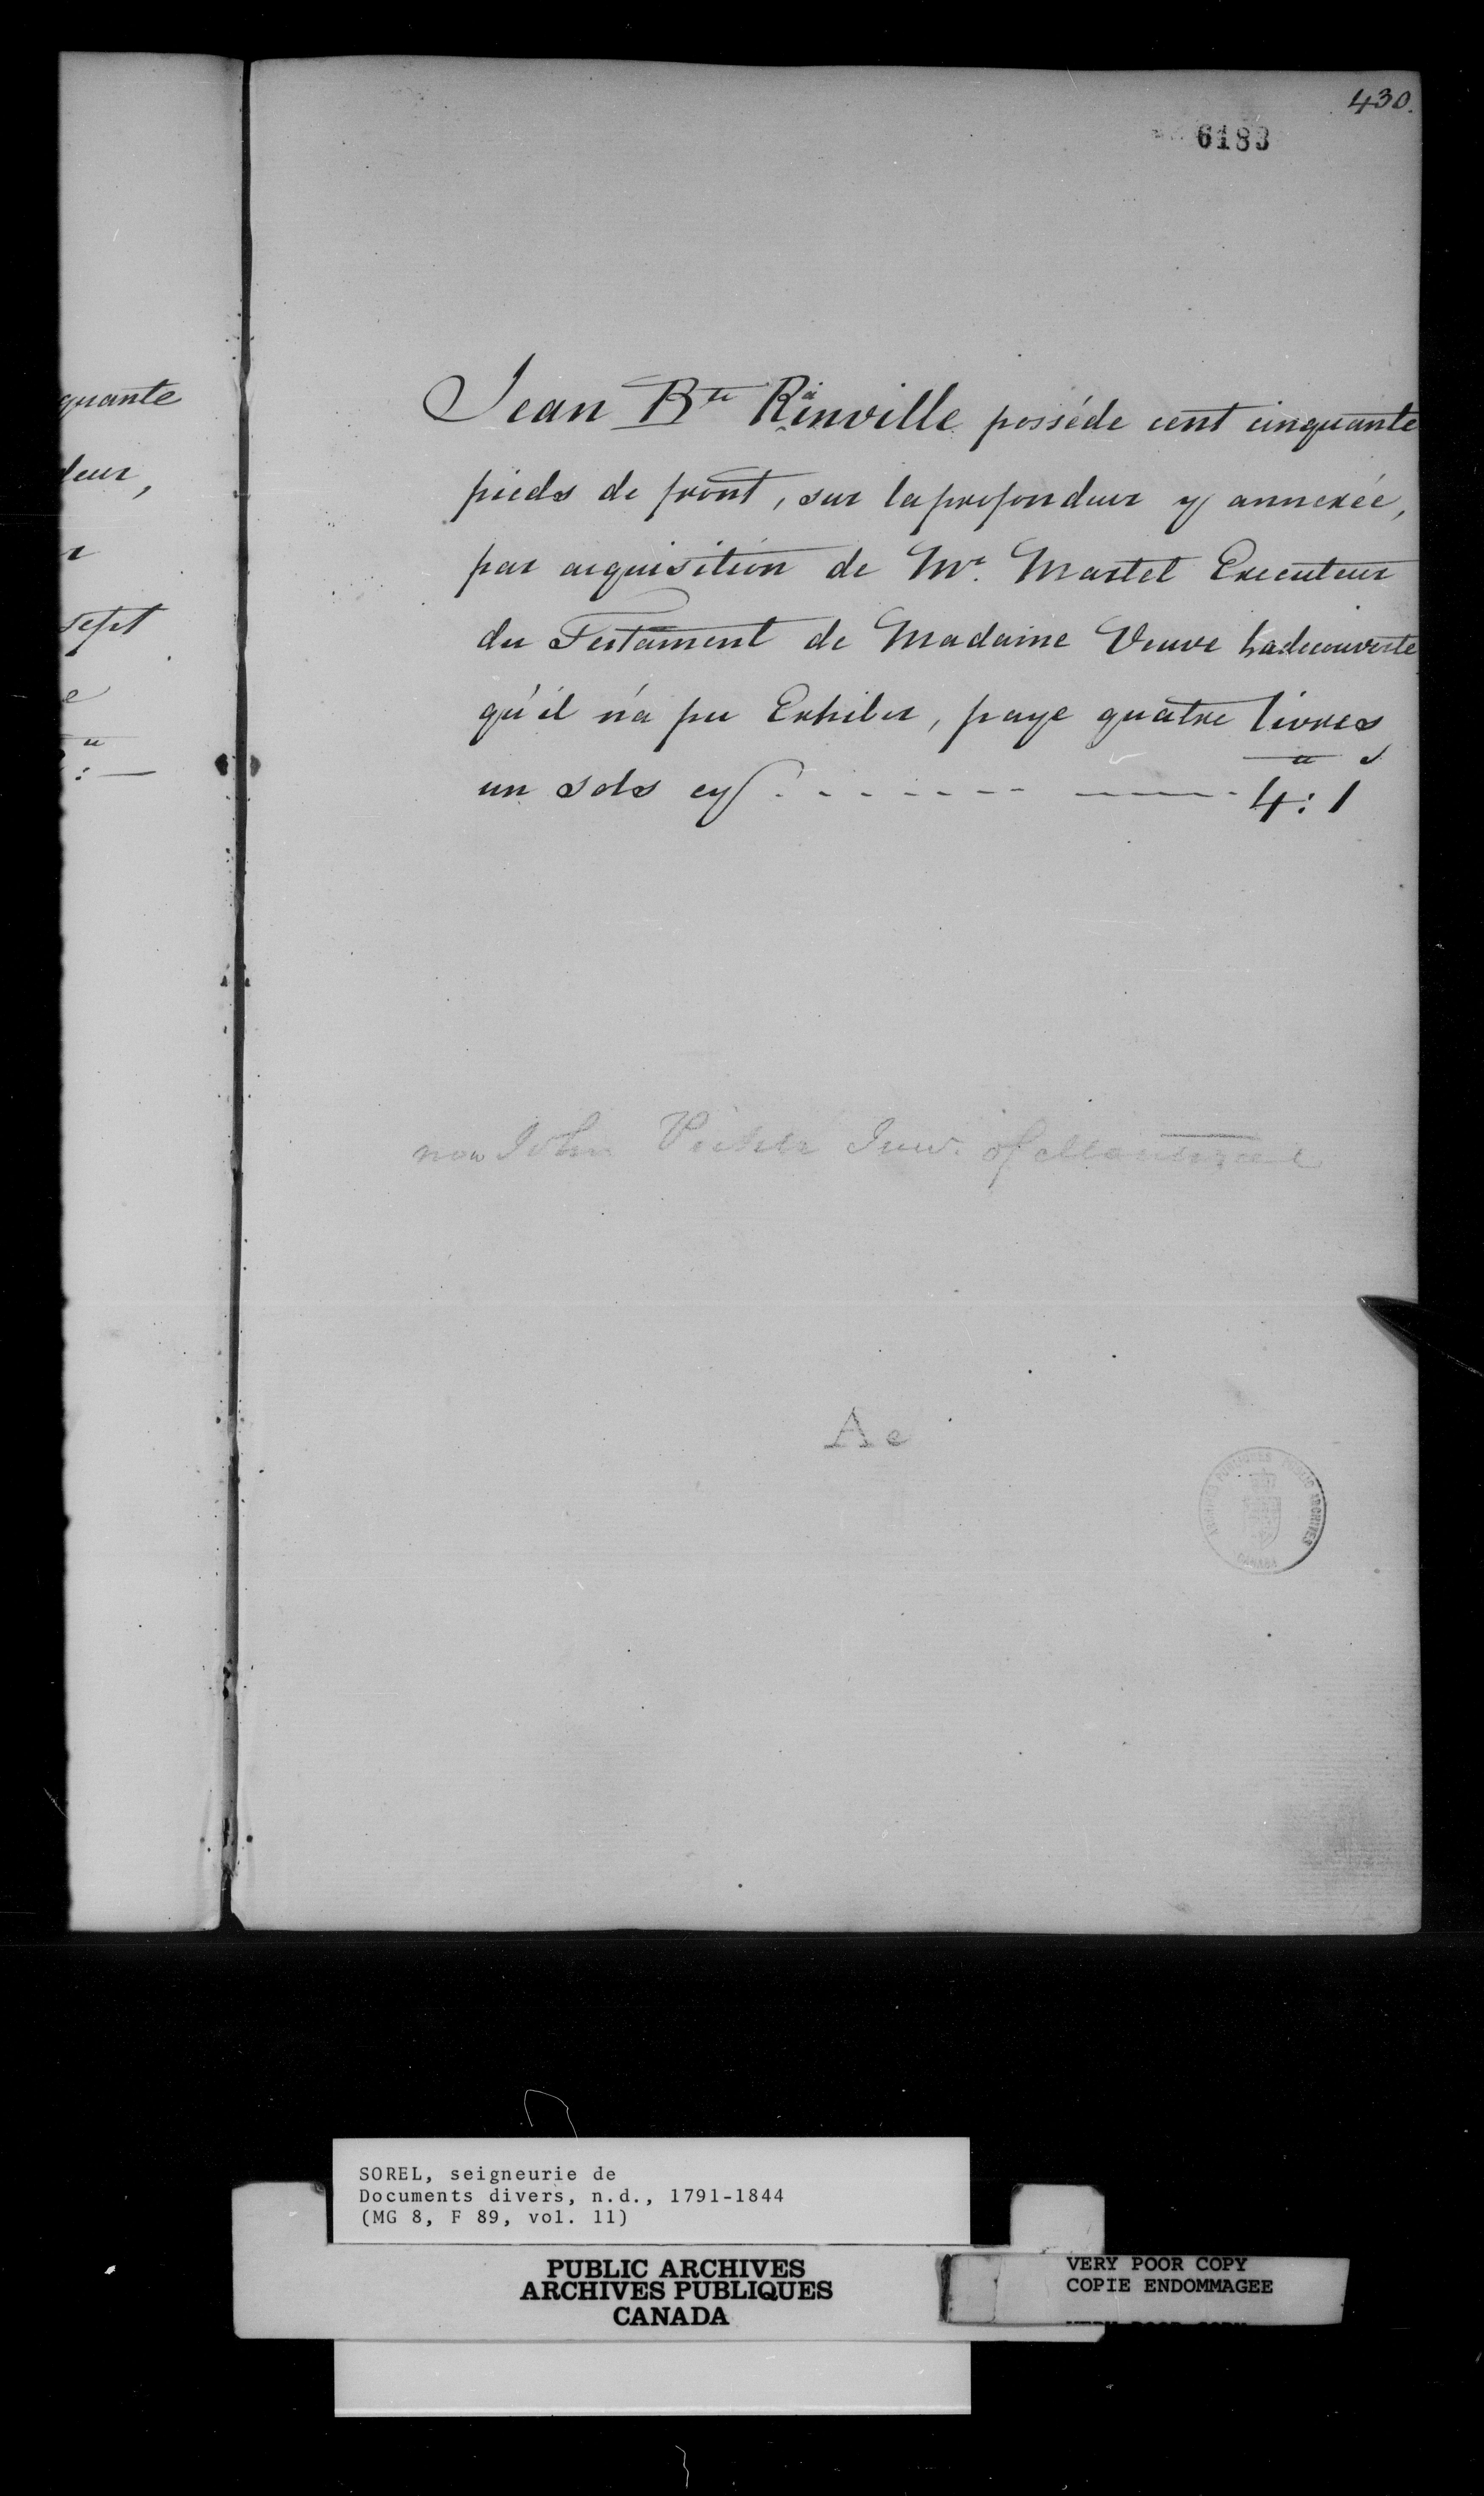 430.
6183
quante
deur,
r
sept
e
Jean Bte Rainville posséde cent cinquante
pieds de front, sur la profondeur y annexée,
par acquisition de Mr. Martel Executeur
du Testament de Madame Veuve Ladecouverte
qu'il n'a pu Exhiber, paye quatre livres
un sols cy 4: 1
now John Junr. of Montreal
Ae
ARCHIVES PUBLIQUES PUBLIC ARCHIVES
CANADA
SOREL, seigneurie de
Documents divers, n.d., 1791-1844
(MG 8, F 89, vol. 11)
PUBLIC ARCHIVES
ARCHIVES PUBLIQUES
CANADA
VERY POOR COPY
COPIE ENDOMMAGEE
VERY POOR COPY